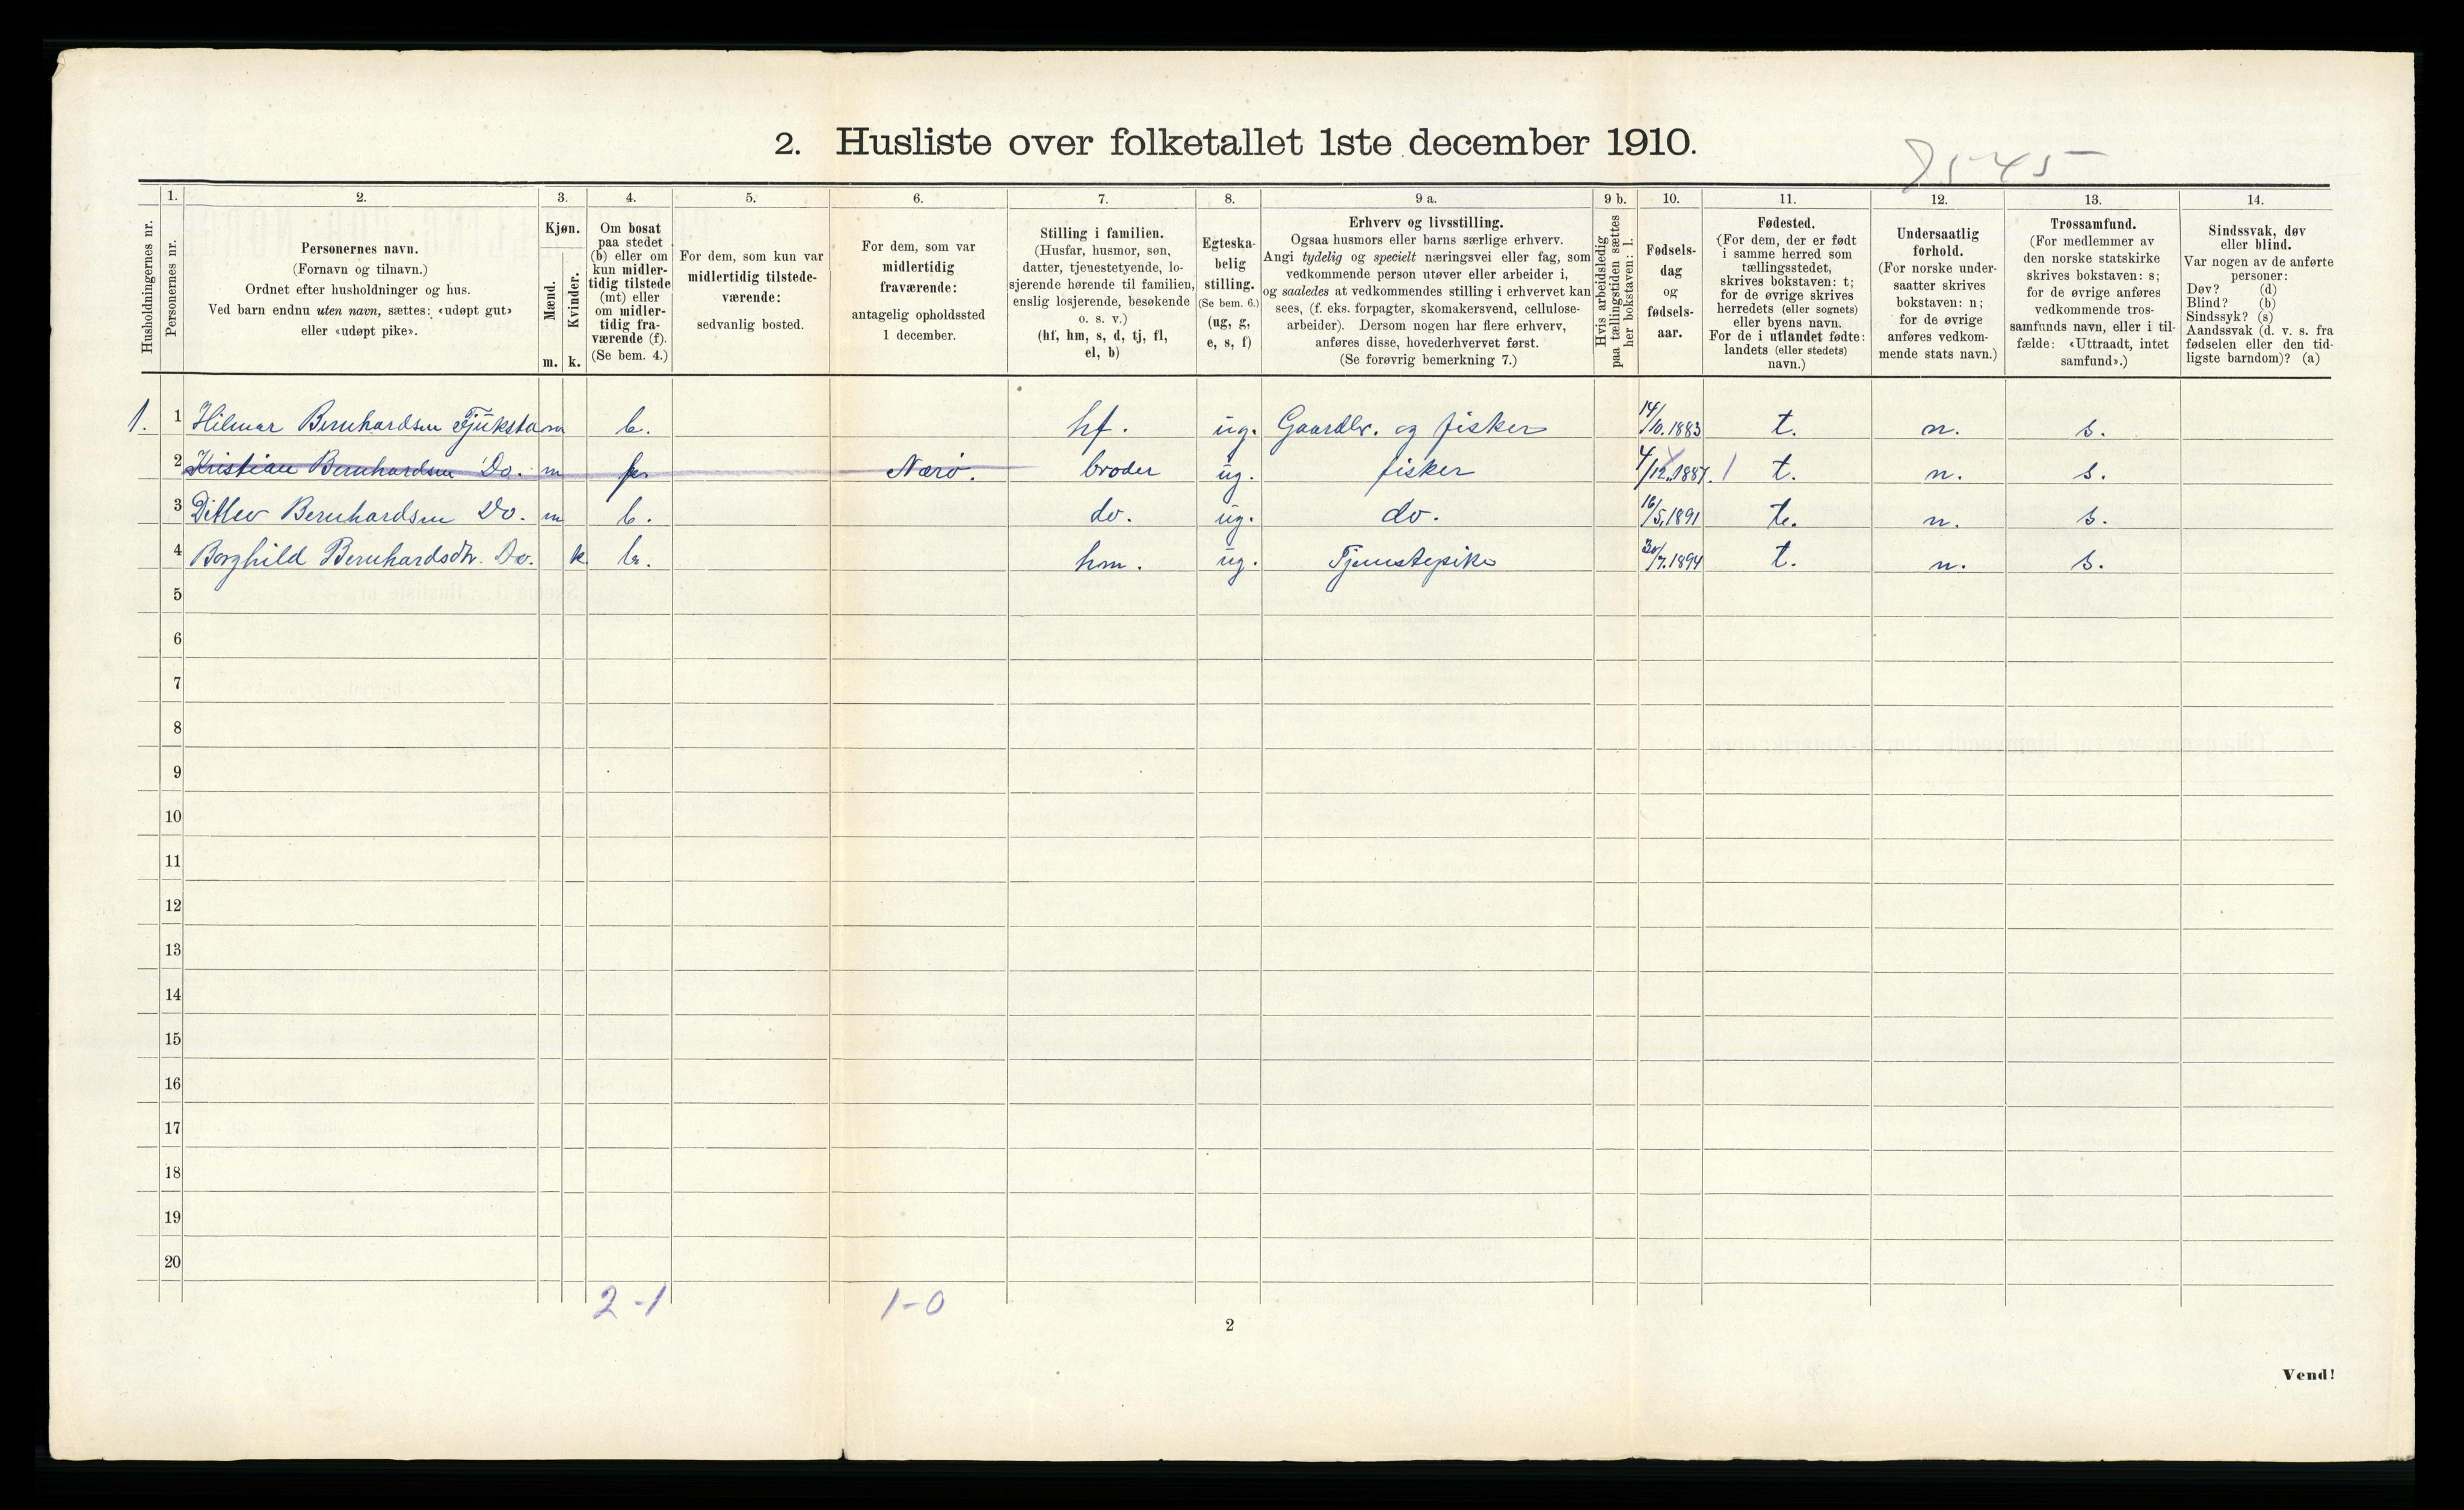 2. Husliste over folketallet 1ste december 1910.
Husholdningernes nr.
1.
Personernes nr.
2.
Personernes navn.
(Fornavn og tilnavn.)
Ordnet efter husholdninger og hus.
Ved barn endnu uten navn, sættes: «udøpt gut»
eller «udøpt pike».
3.
Kjøn.
Mænd.
Kvinder.
m. k.
4.
Om bosat
paa stedet
(b) eller om
kun midler-
tidig tilstede
(mt) eller
om midler-
tidig fra-
værende (f).
(Se bem. 4.)
5.
For dem, som kun var
midlertidig tilstede-
værende:
sedvanlig bosted.
6.
For dem, som var
midlertidig
fraværende:
antagelig opholdssted
1 december.
7.
Stilling i familien.
(Husfar, husmor, søn,
datter, tjenestetyende, lo-
sjerende hørende til familien,
enslig losjerende, besøkende
o. s. v.)
(hf, hm, s, d, tj, fl,
el, b)
8.
Egteska-
belig
stilling.
(Se bem. 6.)
(ug, g,
e, s, f)
9 a.
Erhverv og livsstilling.
Ogsaa husmors eller barns særlige erhverv.
Angi tydelig og specielt næringsvei eller fag, som
vedkommende person utøver eller arbeider i,
og saaledes at vedkommendes stilling i erhvervet kan
sees, (f. eks. forpagter, skomakersvend, cellulose-
arbeider). Dersom nogen har flere erhverv,
anføres disse, hovederhvervet først.
(Se forøvrig bemerkning 7.)
9 b.
Hvis arbeidsledig
paa tællingstiden sættes
her bokstaven: l.
10.
Fødsels-
dag
og
fødsels-
aar.
11.
Fødested.
(For dem, der er født
i samme herred som
tællingsstedet,
skrives bokstaven: t;
for de øvrige skrives
herredets (eller sognets)
eller byens navn.
For de i utlandet fødte:
landets (eller stedets)
navn.)
12.
Undersaatlig
forhold.
(For norske under-
saatter skrives
bokstaven: n;
for de øvrige
anføres vedkom-
mende stats navn.)
13.
Trossamfund.
(For medlemmer av
den norske statskirke
skrives bokstaven: s;
for de øvrige anføres
vedkommende tros-
samfunds navn, eller i til-
fælde: «Uttraadt, intet
samfund».)
14.
Sindssvak, døv
eller blind.
Var nogen av de anførte
personer:
Døv? (d)
Blind? (b)
Sindssyk? (s)
Aandssvak (d. v. s. fra
fødselen eller den tid-
ligste barndom)? (a)
1. 1 Hilmar Bernhardsen m b. hf. ug. Gaardbr. og fisker 14/10.1883 t. n. s.
2 Kristian Bernhardsen Do. m Nærø. broder ug. fisker 4/12.1887. t. n. s.
3 Ditlev Bernhardsen Do. m b. do. ug. do. 16/5.1891 t. n. s.
4 Borghild Bernhardsdtr. Do. k b. hm. ug. Tjenstepike 30/7.1894 t. n. s.
5
6
7
8
9
10
11
12
13
14
15
16
17
18
19
20
2-1 1-0
2
Vend!